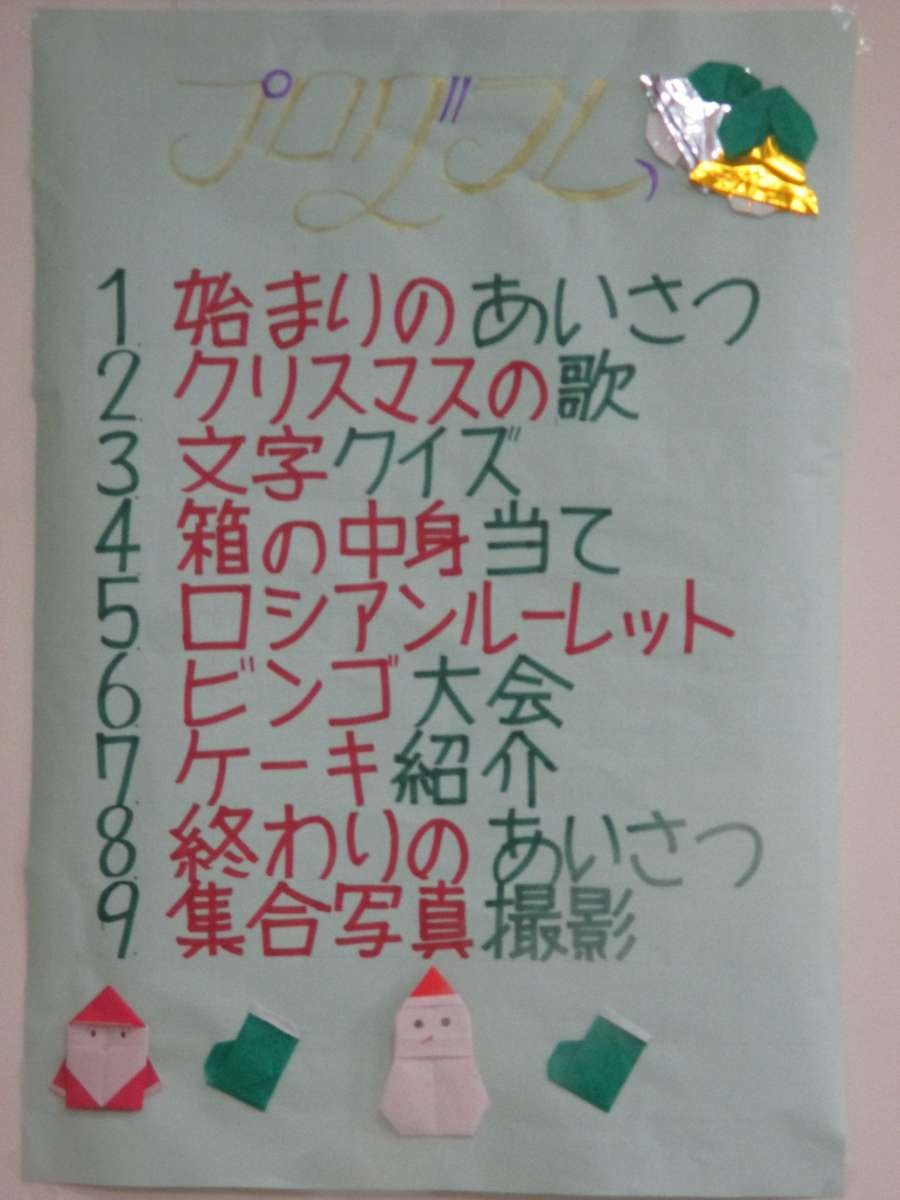 プログラム
1 始まりのあいさつ
2 クリスマスの歌
3 文字クイズ
4 箱の中身当て
5 ロシアンルーレット
6 ビンゴ大会
7 ケーキ紹介
8 終わりのあいさつ
9 集合写真撮影